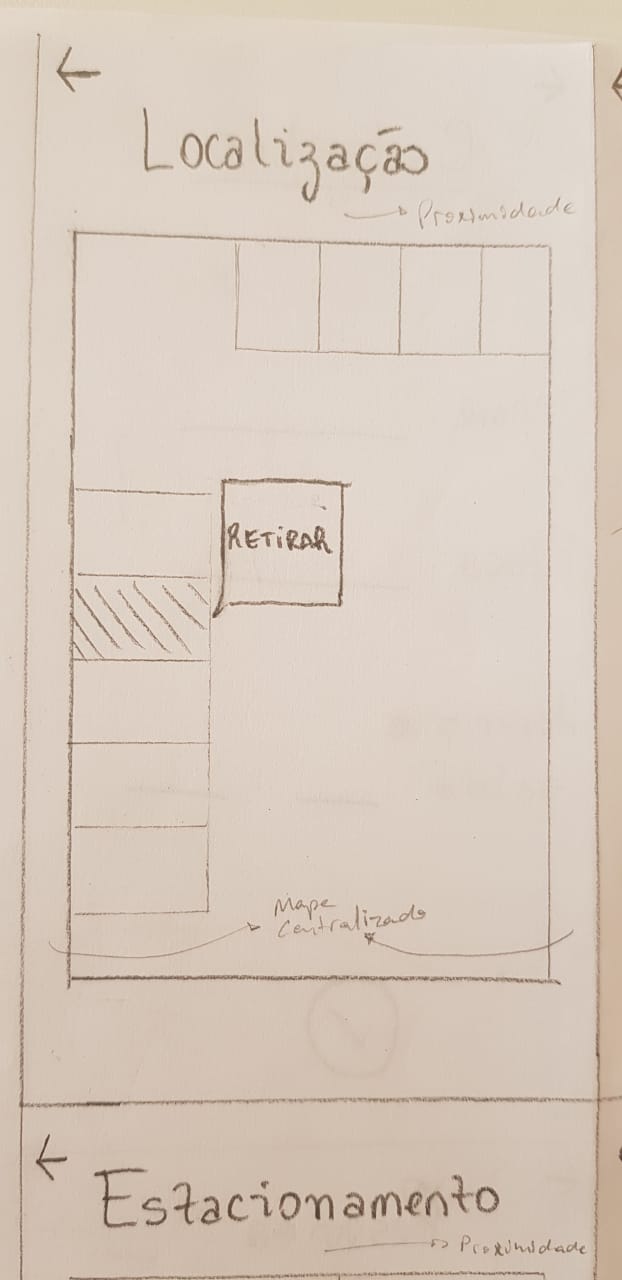 Localização
Proximidade
RETIRAR
Mapa
Centralizado
Estacionamento
Proximidade